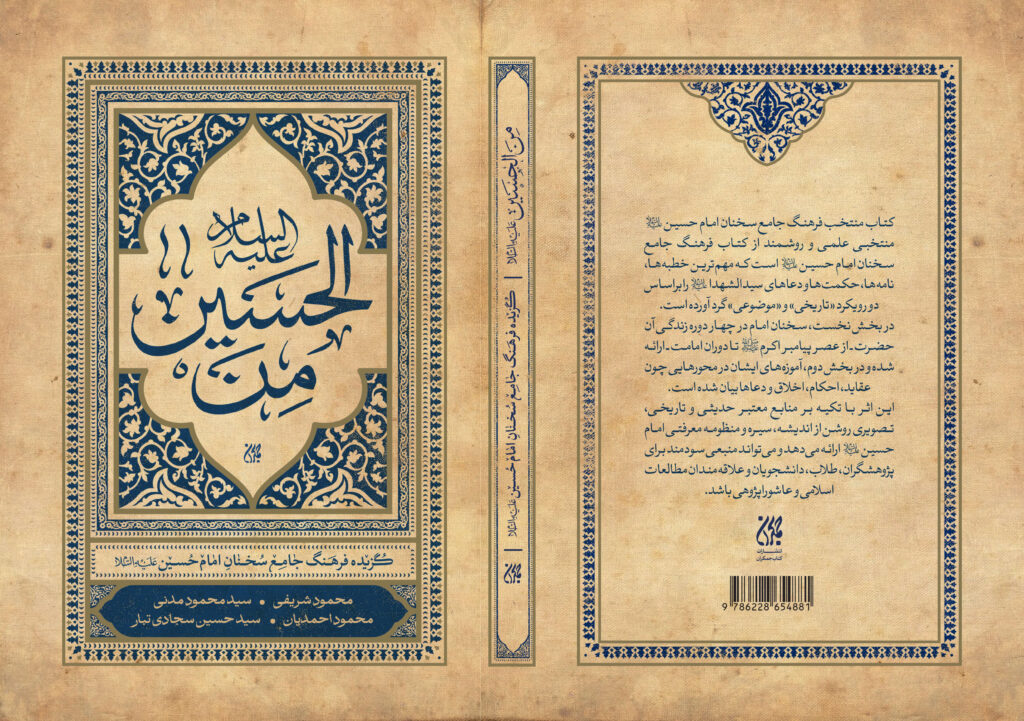 من الحسین
علیه السلام
جمکران
گزیده فرهنگ جامع سخنان امام حسین علیه السلام
محمود شریفی • سید محمود مدنی
محمود احمدیان • سید حسین سجادی تبار
من الحسین علیه السلام | گزیده فرهنگ جامع سخنان امام حسین علیه السلام | جمکران
کتاب منتخب فرهنگ جامع سخنان امام حسین علیه السلام
منتخبی علمی و روشمند از کتاب فرهنگ جامع
سخنان امام حسین علیه السلام است که مهم‌ترین خطبه‌ها،
نامه‌ها، حکمت‌ها و دعاهای سیدالشهدا علیه السلام را براساس
دو رویکرد «تاریخی» و «موضوعی» گرد آورده است.
در بخش نخست، سخنان امام در چهار دوره زندگی آن
حضرت ـ از عصر پیامبر اکرم ﷺ تا دوران امامت ـ ارائه
شده و در بخش دوم، آموزه‌های ایشان در محورهایی چون
عقاید، احکام، اخلاق و دعاها بیان شده است.
این اثر با تکیه بر منابع معتبر حدیثی و تاریخی،
تصویری روشن از اندیشه، سیره و منظومه معرفتی امام
حسین علیه السلام ارائه می‌دهد و می‌تواند منبعی سودمند برای
پژوهشگران، طلاب، دانشجویان و علاقه‌مندان مطالعات
اسلامی و عاشوراپژوهی باشد.
جمکران
انتشارات
کتاب جمکران
9 786228 654881